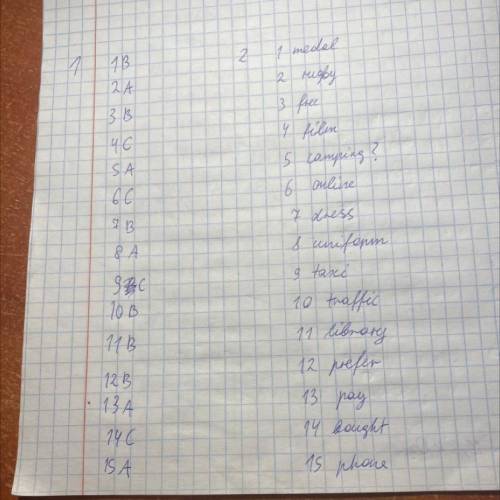 1
1B
2A
3B
4C
5A
6C
7B
8A
9C
10B
11B
12B
13A
14C
15A
2
1 medal
2 rugby
3 free
4 film
5 camping?
6 online
7 dress
8 uniform
9 taxi
10 traffic
11 library
12 prefer
13 pay
14 bought
15 phone